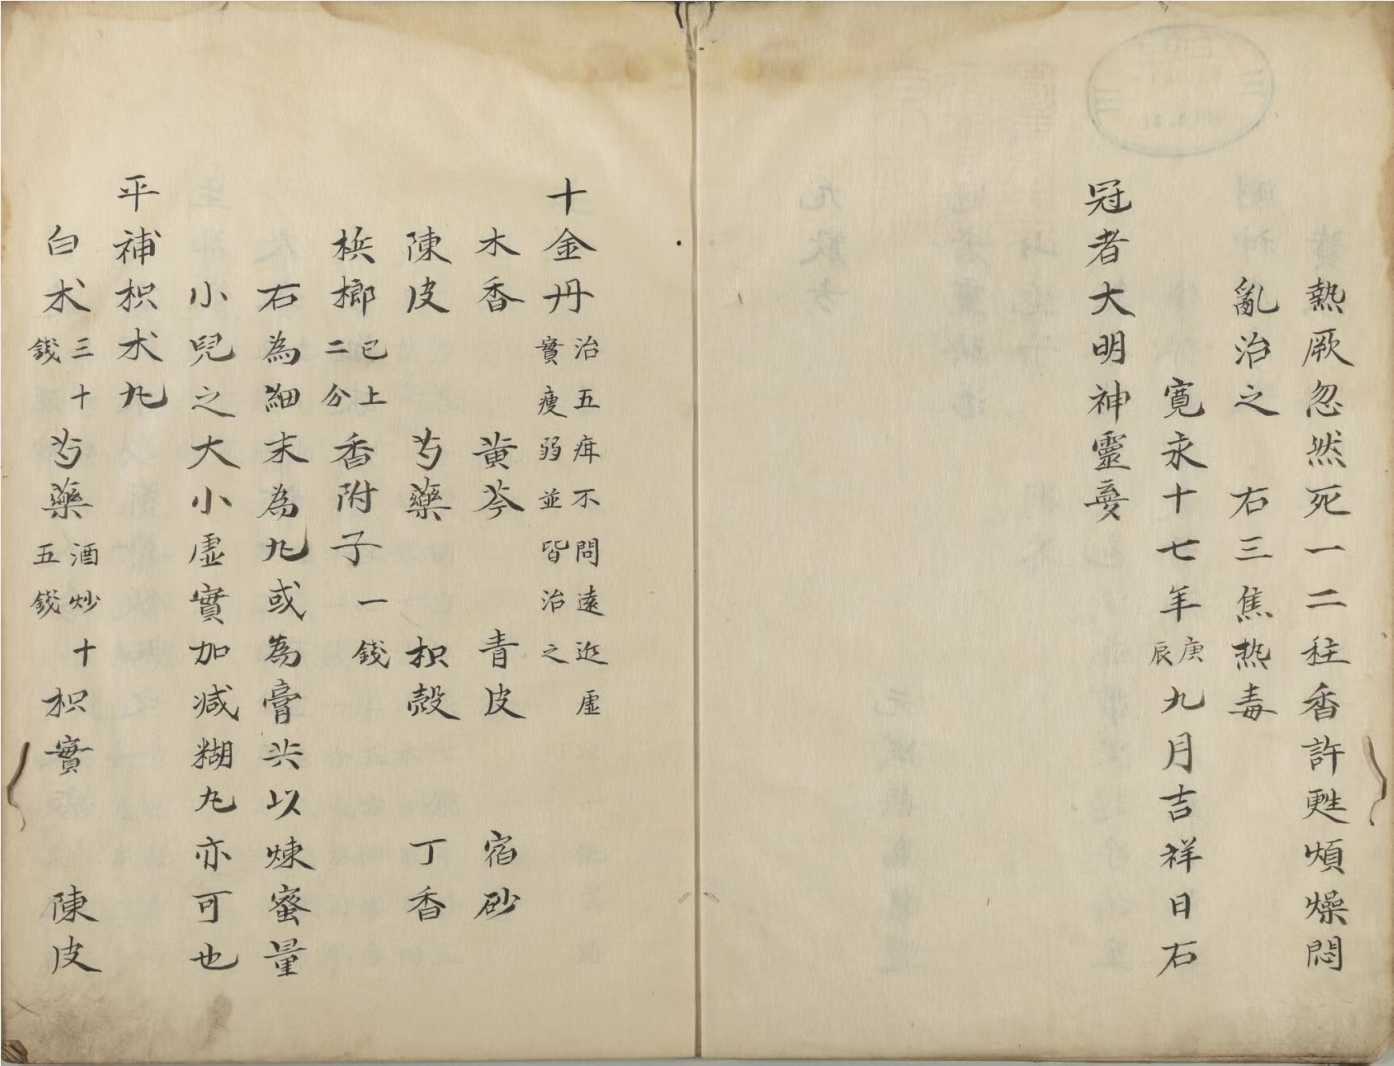 熱厥忽然死一二柱香許甦煩燥悶
亂治之　右三焦热毒
寛永十七年庚辰九月吉祥日石
冠者大明神靈㚑
十金丹治五疳不問遠近虛實瘦弱並皆治之
木香　黄芩　青皮　宿砂
陳皮　芍藥　枳殼　丁香
梹榔已上二分香附子一錢
右為細末為丸或為膏共以煉蜜量
小兒之大小虛實加減糊丸亦可也
平補枳朮丸
白朮三十錢芍藥酒炒十五錢枳實　陳皮